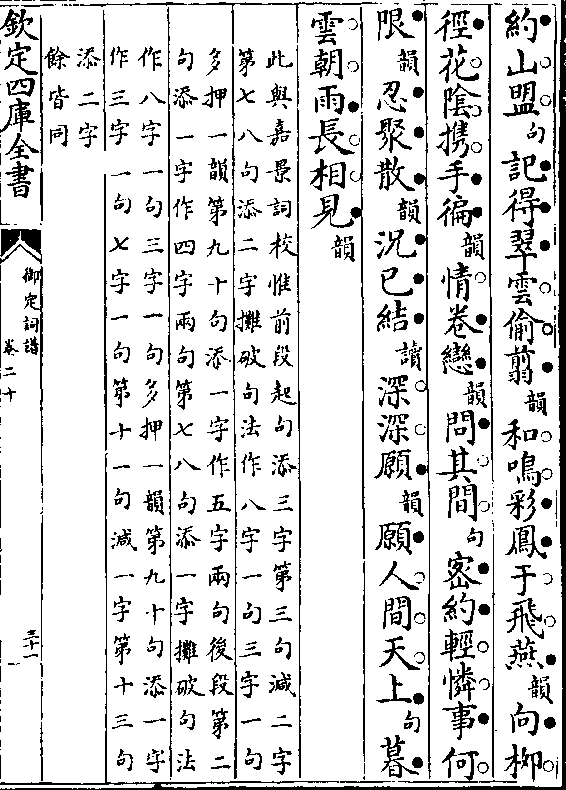 約山盟句記得翠雲偷翦韻和鳴彩鳳于飛燕韻向柳
徑花陰携手徧韻情眷戀韻問其間句密約輕憐事何
限韻忍聚散韻況已結讀深深願韻願人間天上句暮
雲朝雨長相見韻
此與嘉景詞校惟前段起句添三字第三句減二字
第七八句添二字攤破句法作八字一句三字一句
多押一韻第九十句添一字作五字兩句後段第二
句添一字作四字兩句第七八句添一字攤破句法
作八字一句三字一句多押一韻第九十句添一字
作三字一句七字一句第十一句減一字第十三句
添二字
餘皆同
欽定四庫全書
御定詞譜
卷二十
三十一